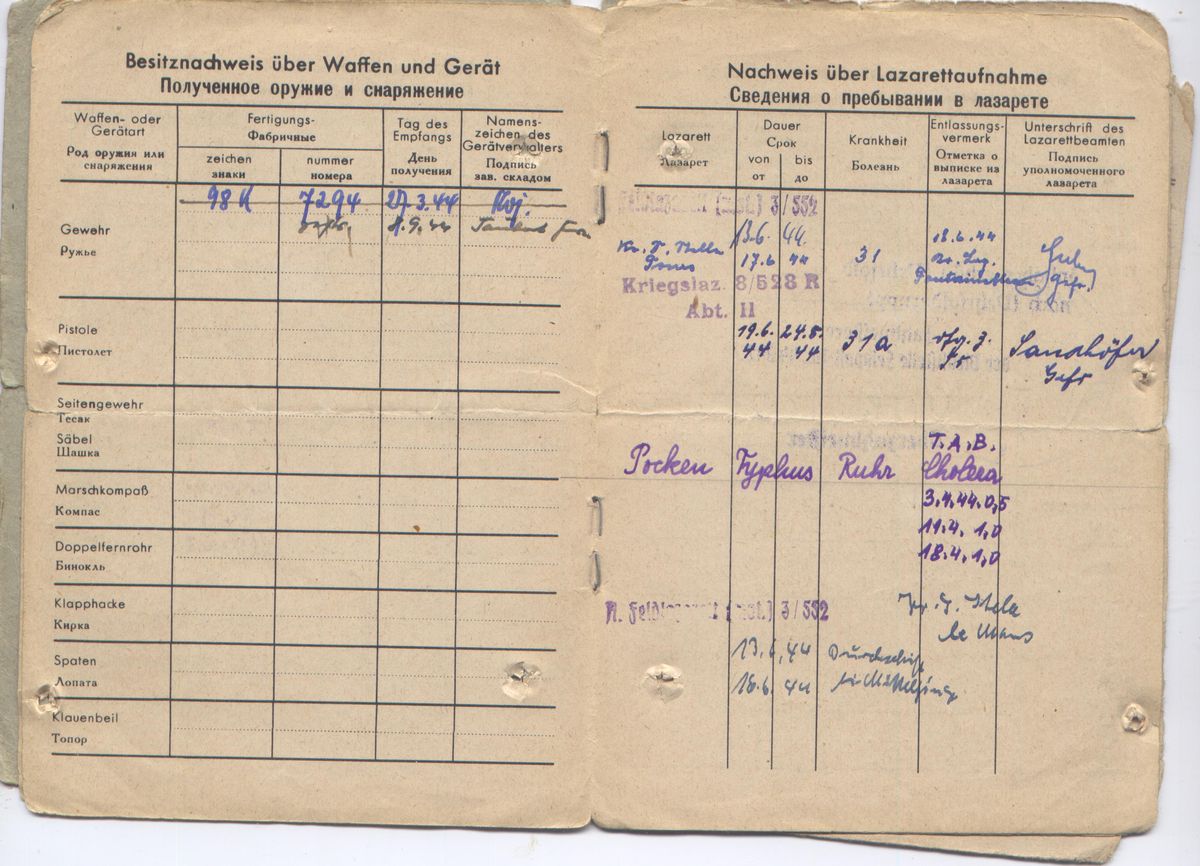 Besitznachweis über Waffen und Gerät
Полученное оружие и снаряжение
Waffen- oder Gerätart
Род оружия или снаряжения
Fertigungs-
Фабричные
zeichen
знаки
nummer
номера
Tag des Empfangs
День получения
Namens-
zeichen des
Gerätverwalters
Подпись
зав. складом
98 K 7294 27.3.44
8.9.44
Gewehr
Ружье
Pistole
Пистолет
Seitengewehr
Тесак
Säbel
Шашка
Marschkompaß
Компас
Doppelfernrohr
Бинокль
Klapphacke
Кирка
Spaten
Лопата
Klauenbeil
Топор
Nachweis über Lazarettaufnahme
Сведения о пребывании в лазарете
Lazarett
Лазарет
Dauer
Срок
von
от
bis
до
Krankheit
Болезнь
Entlassungs-
vermerk
Отметка о
выписке из
лазарета
Unterschrift des
Lazarettbeamten
Подпись
уполномоченного
лазарета
3/552
13.6. 44.
17.6 44 31 18.6.44
Gefr.
Kriegslaz. 8/528 R
Abt. II
19.6. 24.8.
44 44 31a Sandhöfer
Gefr
T.A.B.
Pocken Typhus Ruhr Cholera
3.4.44.0,5
11.4. 1,0
18.4. 1,0
3/552
le Mans
13.6.44 Durchschuß
18.6.44